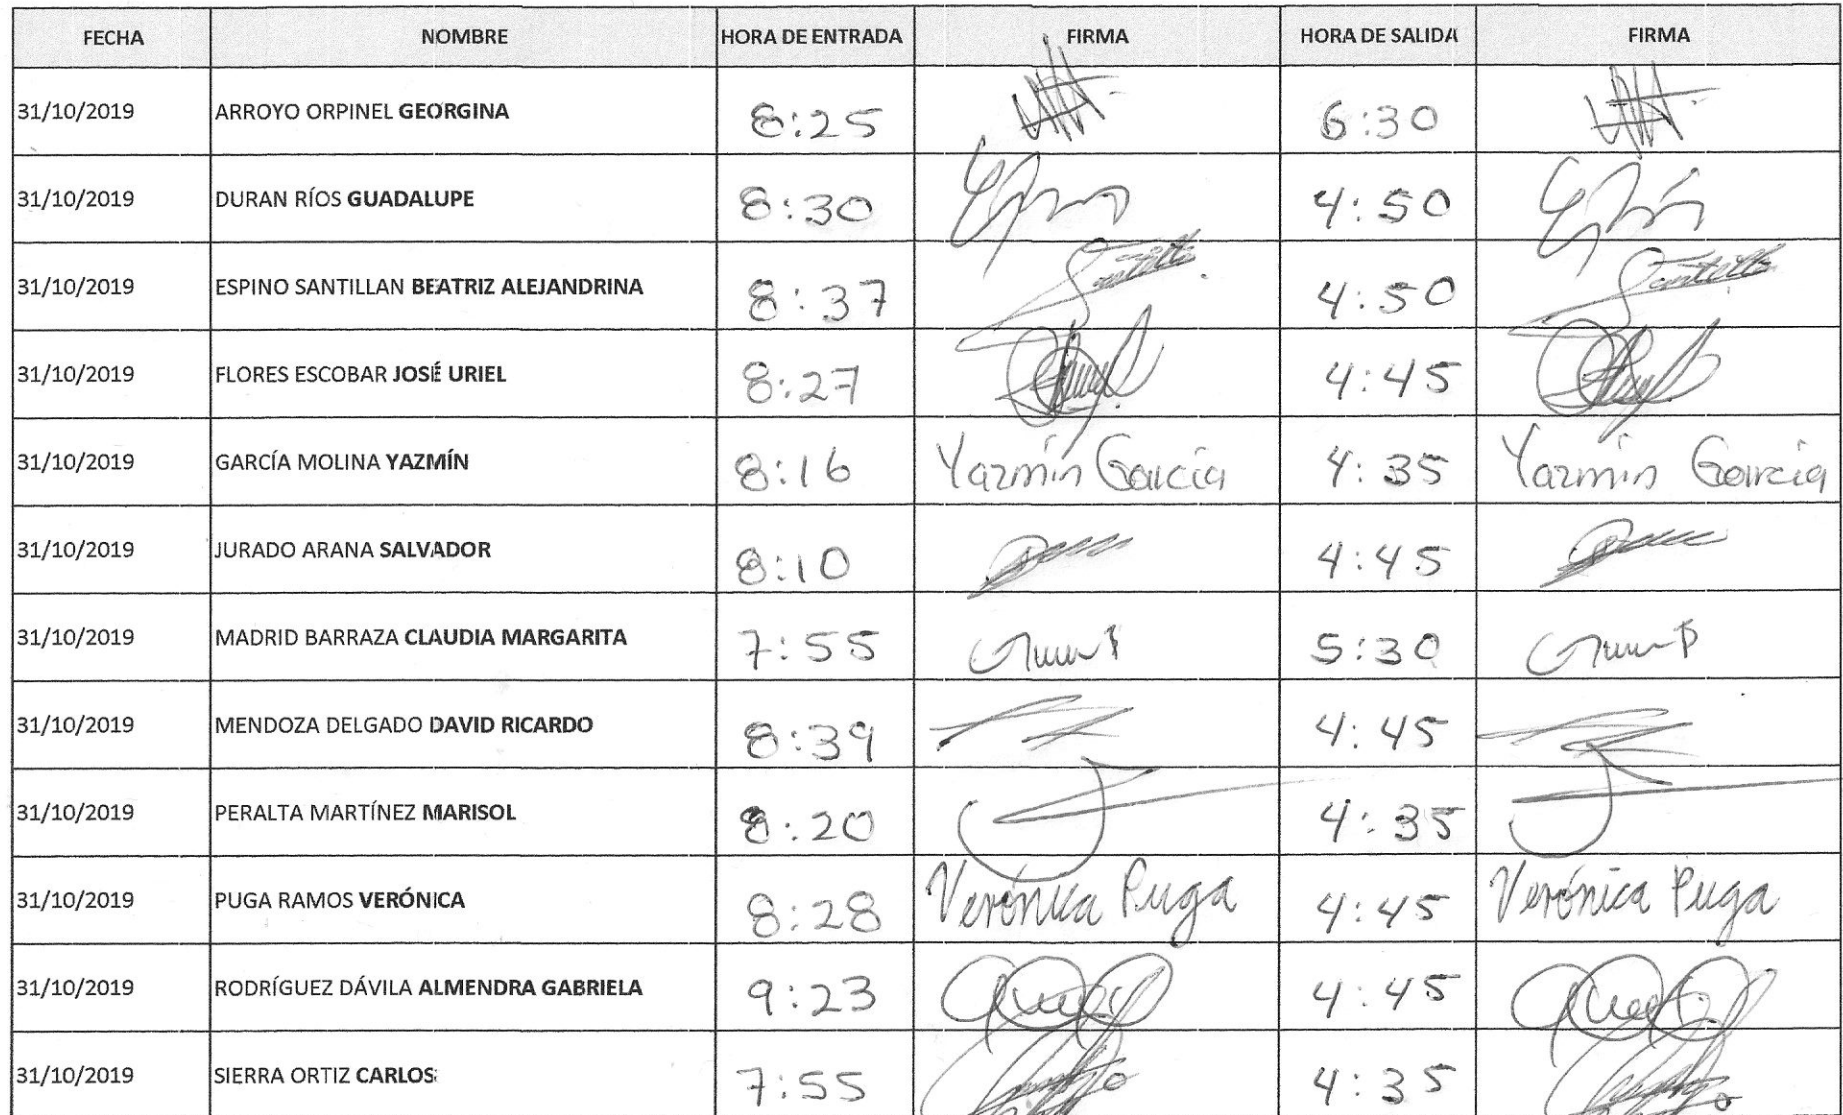 FECHA NOMBRE HORA DE ENTRADA FIRMA HORA DE SALIDA FIRMA
31/10/2019 ARROYO ORPINEL GEORGINA 8:25 6:30
31/10/2019 DURAN RÍOS GUADALUPE 8:30 4:50
31/10/2019 ESPINO SANTILLAN BEATRIZ ALEJANDRINA 8:37 4:50
31/10/2019 FLORES ESCOBAR JOSÉ URIEL 8:27 4:45
31/10/2019 GARCÍA MOLINA YAZMÍN 8:16 Yazmín García 4:35 Yazmín García
31/10/2019 JURADO ARANA SALVADOR 8:10 4:45
31/10/2019 MADRID BARRAZA CLAUDIA MARGARITA 7:55 5:30
31/10/2019 MENDOZA DELGADO DAVID RICARDO 8:39 4:45
31/10/2019 PERALTA MARTÍNEZ MARISOL 8:20 4:35
31/10/2019 PUGA RAMOS VERÓNICA 8:28 Verónica Puga 4:45 Verónica Puga
31/10/2019 RODRÍGUEZ DÁVILA ALMENDRA GABRIELA 9:23 4:45
31/10/2019 SIERRA ORTIZ CARLOS 7:55 4:35